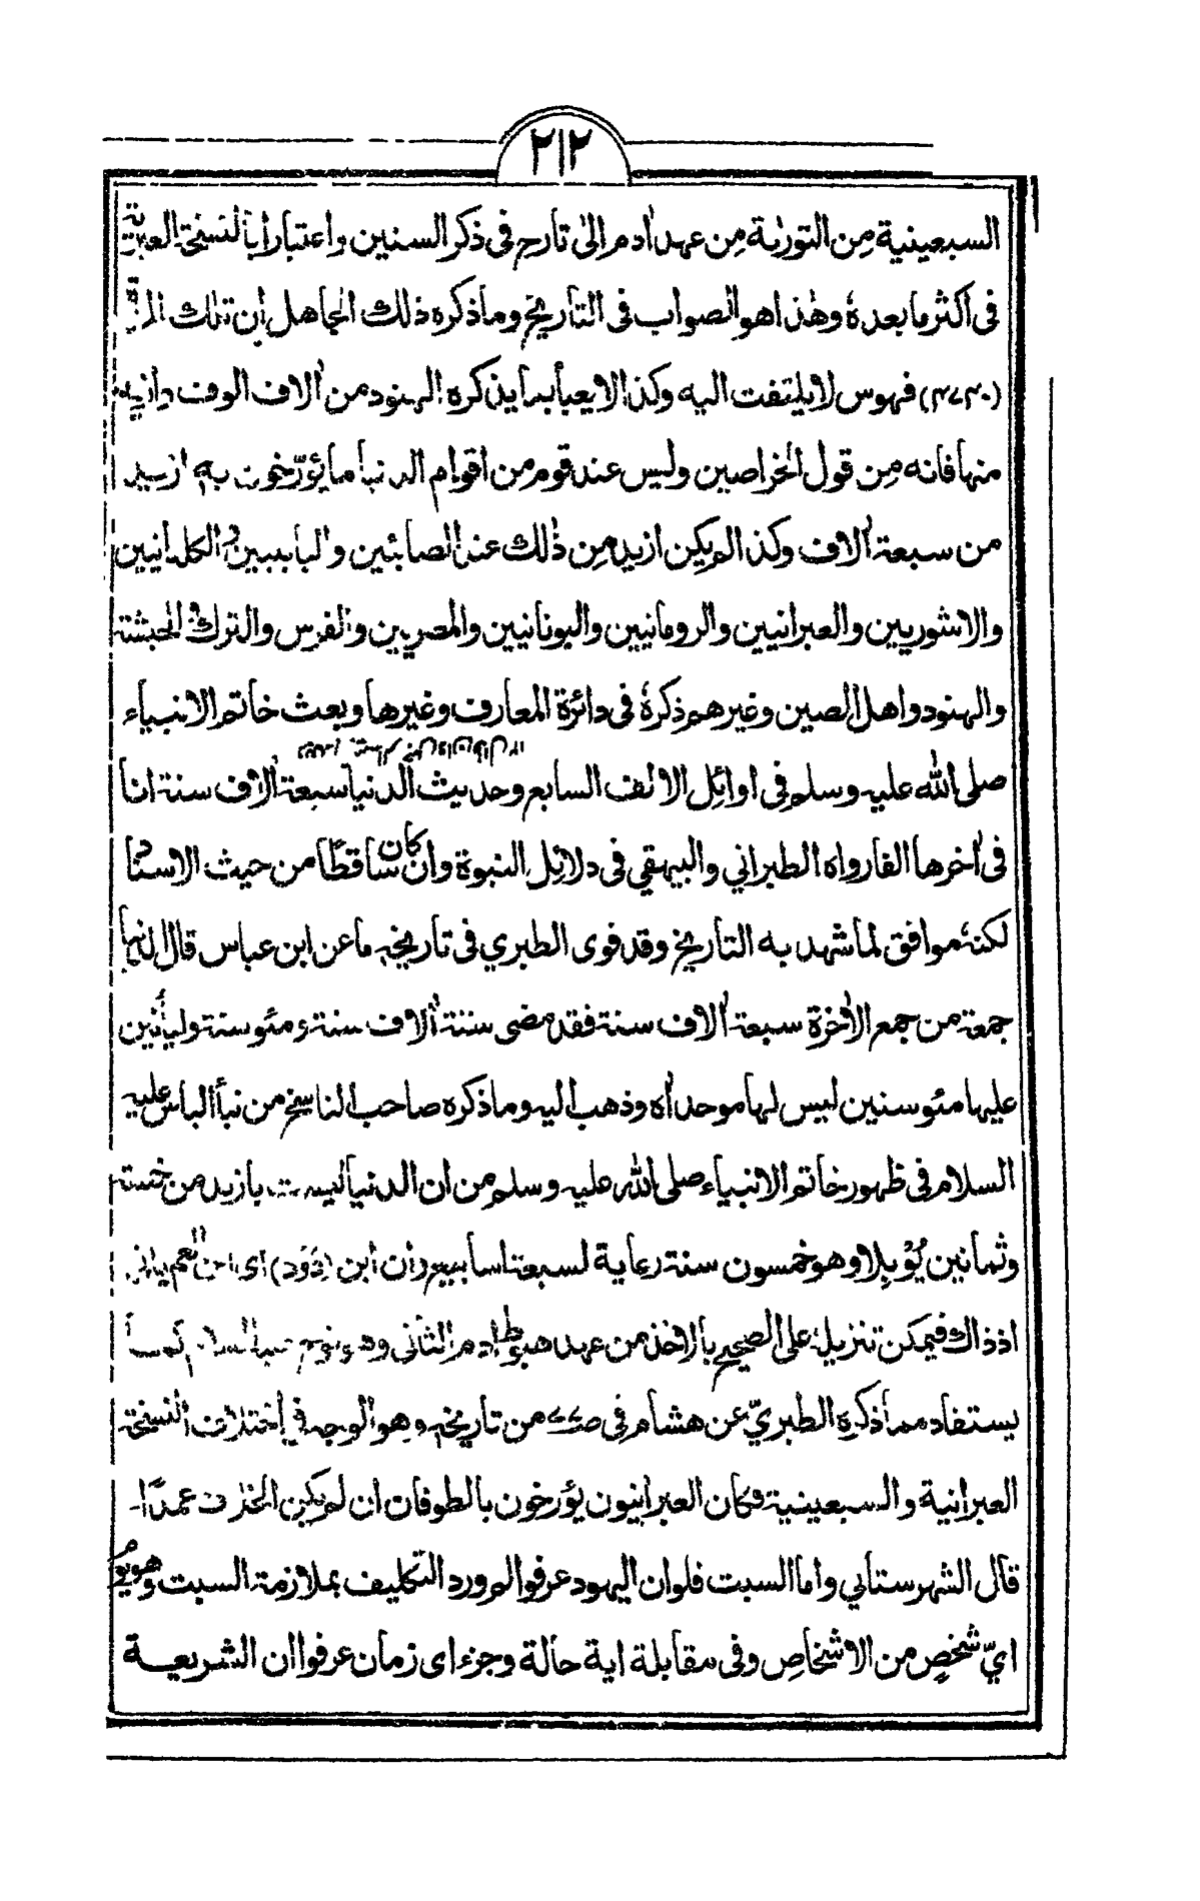 ٢١٢
السبعينية من التورٰىة من عهد اٰدم الىٰ تارح فى ذكر السنين واعتباراً بالنسخة العبرية
فى اكثر ما بعدهٗ وهٰذا هو الصواب فى التاريخ وما ذكره ذلك الجاهل ان تلك المدة
(٤٧٣٠) فهوس لا يلتفت اليه وكذا لا يعبأ بما يذكره الهنود من اٰلاف الوف وازيد
منها فانه من قول الخراصين وليس عند قوم من اقوام الدنيا ما يؤرّخون به ازيد
من سبعة اٰلاف وكذا لم يكن ازيد من ذٰلك عند الصابئين والبابيين و الكلدانيين
والاشوريين والعبرانيين والرومانيين واليونانيين والمصريين والفرس والترك و الحبشة
والهنود واهل الصين وغيرهم ذكرهٗ فى دائرة المعارف وغيرها وبعث خاتم الانبياء
صلى الله عليه وسلم فى اوائل الالف السابع وحديث الدنيا سبعة اٰلاف سنة انا
فى اٰخرها الفا رواه الطبراني والبيهقي فى دلائل النبوة وان كان ساقطاً من حيث الاسناد
لكنهٗ موافق لما شهد به التاريخ وقد قوى الطبري فى تاريخه ما عن ابن عباس قال الدنيا
جمعة من جمع الاٰخرة سبعة اٰلاف سنة فقد مضى ستة اٰلاف سنة ومئو سنة وليأتين
عليها مئو سنين ليس لها موحد اٰه وذهب اليه وما ذكره صاحب الناسخ من نبأ الياس عليه
السلام فى ظهور خاتم الانبياء صلى الله عليه وسلم من ان الدنيا ليست بازيد من خمسة
وثمانين يُوْبِلا وهو خمسون سنة رعاية لسبعة اسابيع وأن ابن (دَوُد) اى
اذ ذاك فيمكن تنزيلهٗ على الصحيح بالاخذ من عهد هبوط اٰدم الثانى وهو نوح عليه السلام كما
يستفاد مما ذكره الطبريّ عن هشام فى ص٧٧ من تاريخه وهو الوجه فى اختلاف النسخة
العبرانية والسبعينية وكان العبرانيون يؤرخون بالطوفان ان لم يكن الحذف عمدًا۔
قال الشهرستاني واما السبت فلو ان اليهود عرفوا لم ورد التكليف بملازمة السبت وهو يوم
ايّ شخصٍ من الاشخاصِ وفى مقابلة اية حالة وجزء اى زمان عرفوا ان الشريعة